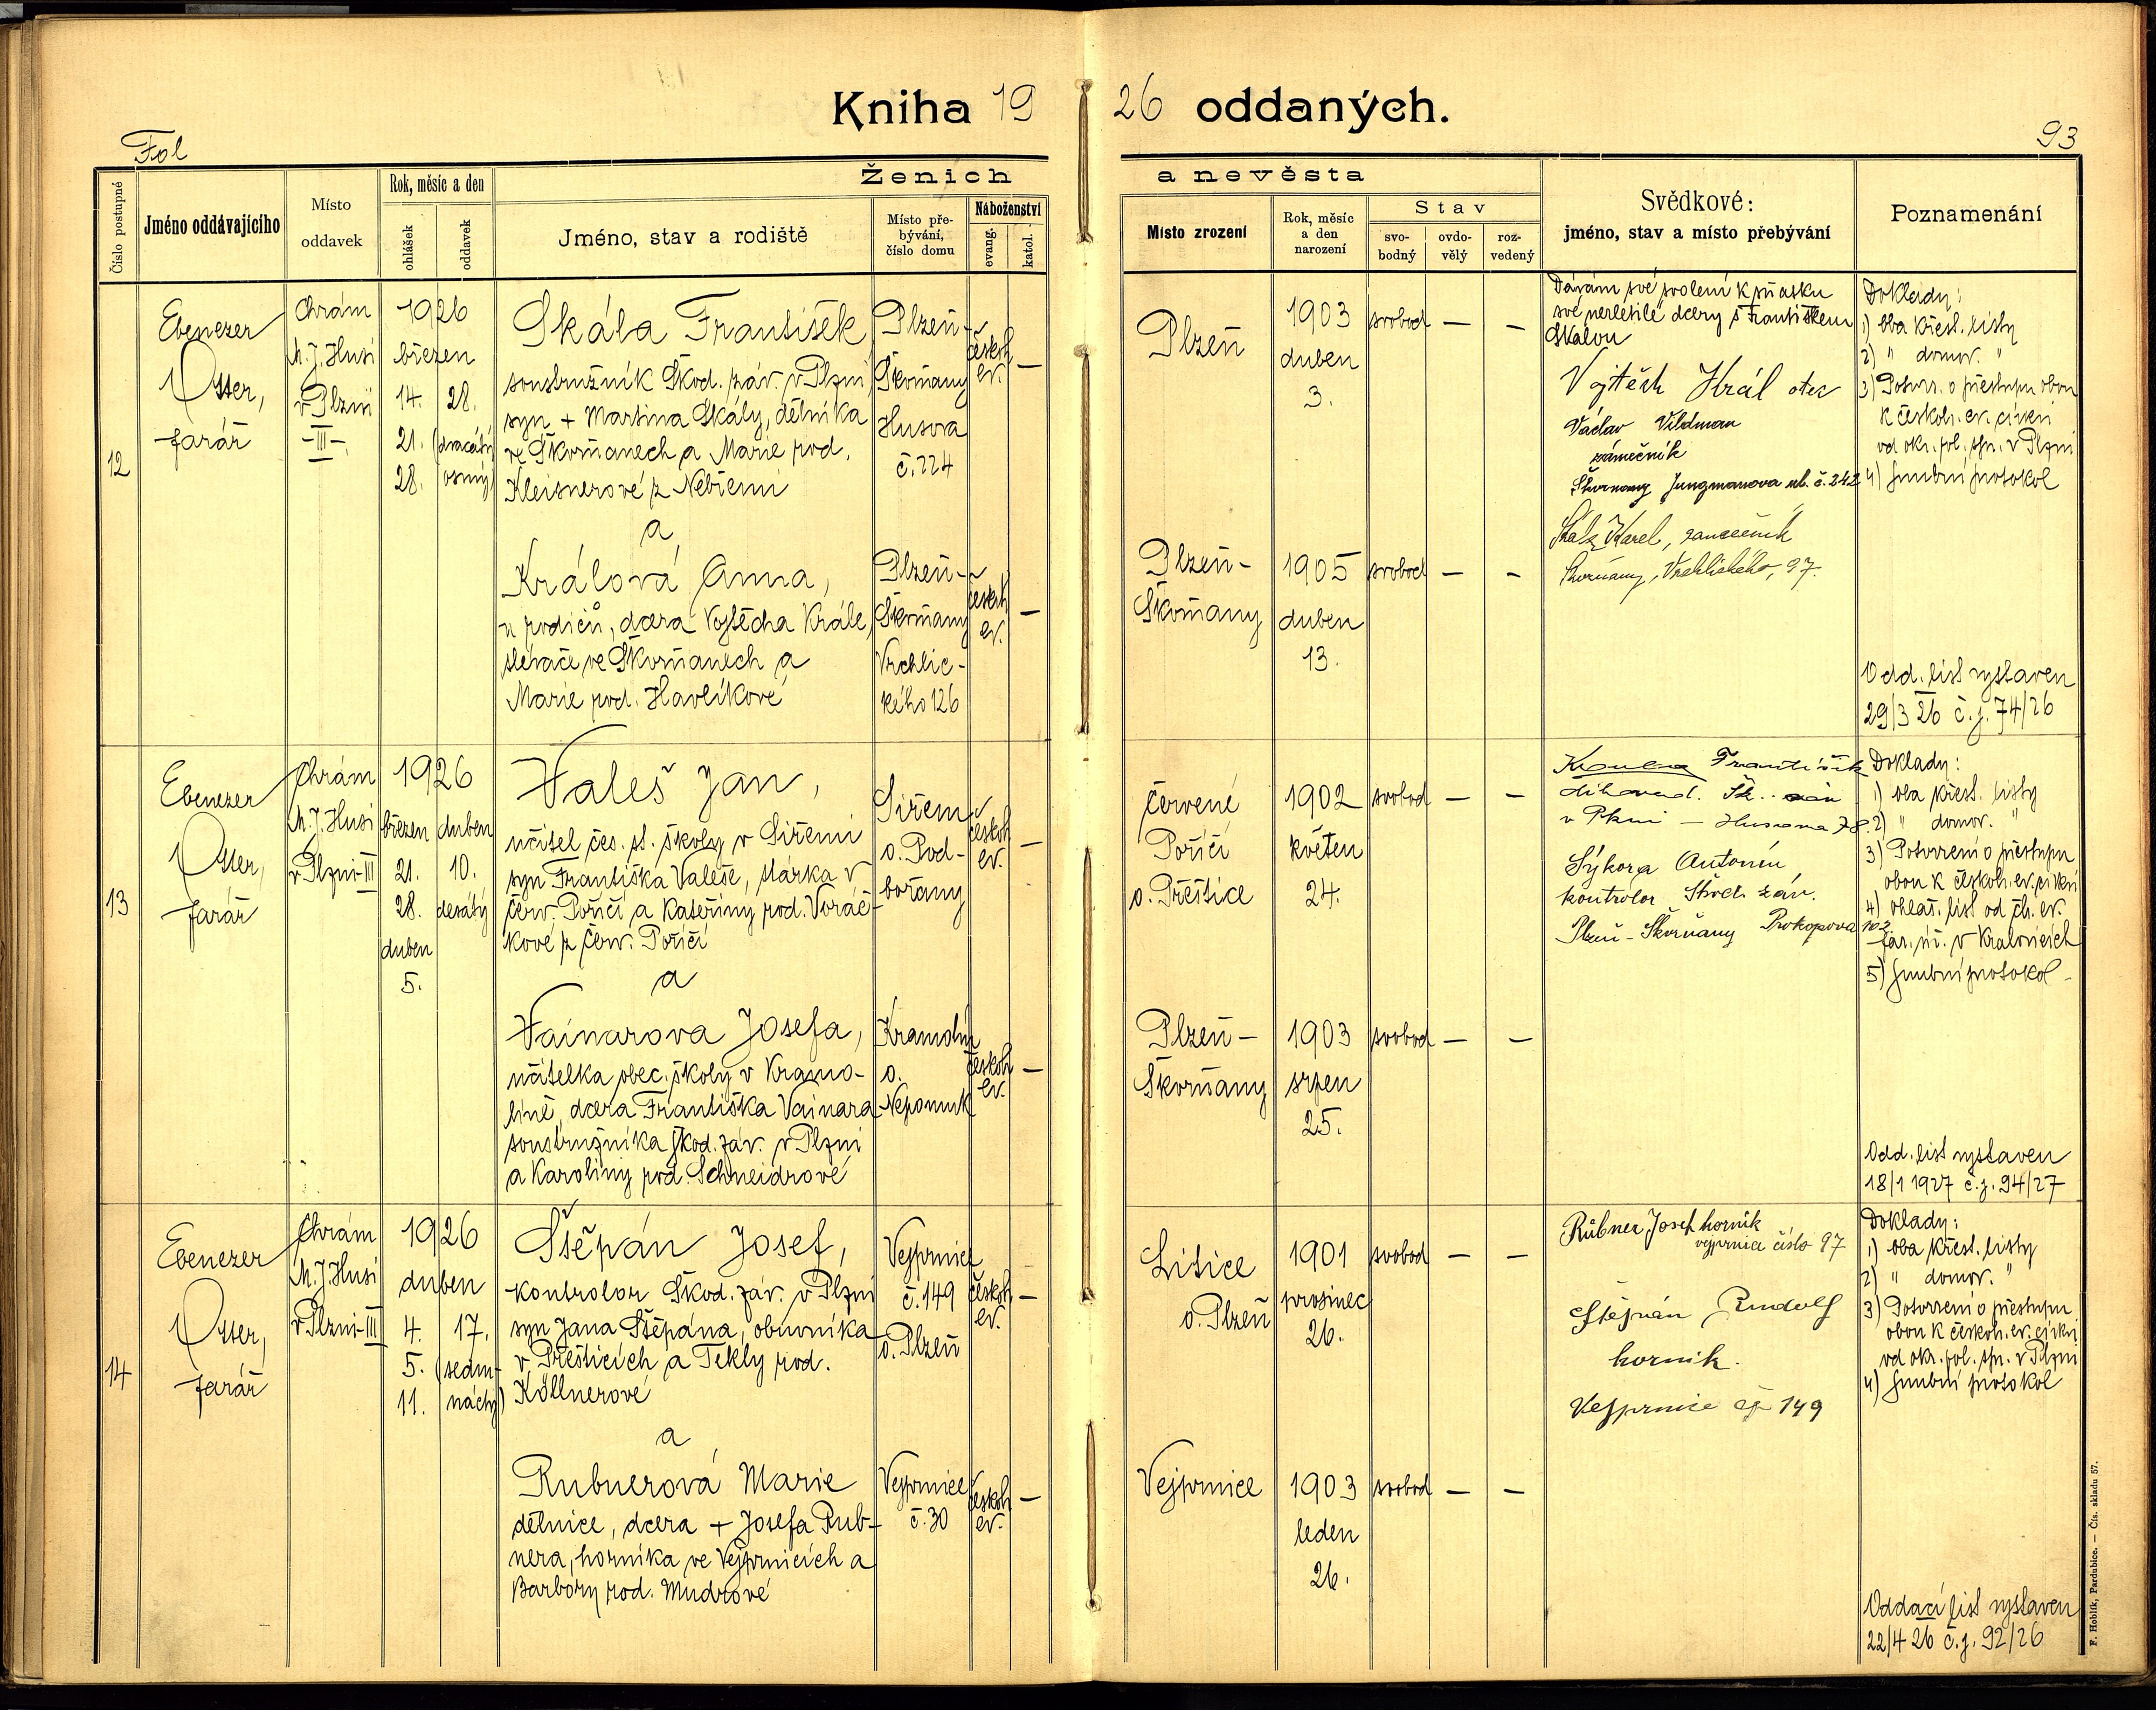 Kniha 19 26 oddaných.
Fol
93
Ženich a nevěsta
Číslo postupné
Jméno oddávajícího
Místo oddavek
Rok, měsíc a den
ohlášek
oddavek
Jméno, stav a rodiště
Místo pře-
bývání,
číslo domu
Náboženství
evang.
katol.
Místo zrození
Rok, měsíc
a den
narození
Stav
svo-
bodný
ovdo-
vělý
roz-
vedený
Svědkové:
jméno, stav a místo přebývání
Poznamenání
12
Ebenezer
Otter,
farář
Chrám
M. J. Husi
v Plzni
-III-.
1926
březen
14. 28.
21. (dvacátý
28. osmý)
Skála František
soustružník Škod. záv. v Plzni,
syn + Martina Skály, dělníka
ve Škvrňanech a Marie rod.
Kleisnerové z Nebřemi
a
Králová Anna,
u rodičů, dcera Vojtěcha Krále,
slévače ve Škvrňanech a
Marie rod. Havlíkové
Plzeň-
Škvrňany
Husova
č. 224
českob.
ev.
—
Plzeň-
Škvrňany
Vrchlic-
kého 126
českob.
ev.
—
Plzeň
1903
duben
3.
svobod — —
Plzeň-
Škvrňany
1905
duben
13.
svobod — -
Dávám své svolení k sňatku
své nezletilé dcery s Františkem
Skálou
Vojtěch Král otec
Václav Vildman
zámečník
Škvrnany Jungmanova ul. č. 242
Karel, zámečník
Škvrňany, Vrchlického, 97.
Doklady:
1) oba křest. listy
2) " domov. "
3) Potvrz. o přestupu obou
k českob. ev. církvi
od okr. pol. spr. v Plzni
4) Snubní protokol
Odd. list vystaven
29/3 26 č. j. 74/26
13
Ebenezer
Otter,
farář
Chrám
M. J. Husi
v Plzni-III
1926
březen duben
21. 10.
28. desátý
duben
5.
Valeš Jan,
učitel čes. st. školy v Siřemi
syn Františka Valeše, stárka v
Červ. Poříčí a Kateřiny rod. Voráč-
kové z Červ. Poříčí
a
Vainarova Josefa,
učitelka obec. školy v Kramo-
líně, dcera Františka Vainara
soustružníka Škod. záv. v Plzni
a Karoliny rod. Schneidrové
Siřem
o. Pod-
bořany
českob.
ev.
—
Kramolín
o.
Nepomuk
českob.
ev.
—
Červené
Poříčí
o. Přeštice
1902
květen
24.
svobod — —
Plzeň-
Škvrňany
1903
srpen
25.
svobod — —
František
v Plzni — Husova 78.
Sýkora Antonín
kontrolor Škod. záv.
Plzeň-Škvrňany Prokopova 102
Doklady:
1) oba křest. listy
2) " domov. "
3) Potvrzení o přestupu
obou k českob. ev. církvi
4) ohláš. list od čb. ev.
far. úř. v Kralovicích
5) Snubní protokol -
Odd. list vystaven
18/1 1927 č. j. 94/27
14
Ebenezer
Otter,
farář
Chrám
M. J. Husi
v Plzni-III
1926
duben
4. 17.
5. (sedm-
11. náctý)
Štěpán Josef,
kontrolor Škod. záv. v Plzni
syn Jana Štěpána, obuvníka
v Přešticích a Tekly rod.
Köllnerové
a
Rubnerová Marie
dělnice, dcera + Josefa Rub-
nera, horníka ve Vejprnicích a
Barbory rod. Mudrové
Vejprnice
č. 149
o. Plzeň
českob.
ev.
—
Vejprnice
č. 30
českob.
ev.
—
Litice
o. Plzeň
1901
prosinec
26.
svobod — —
Vejprnice
1903
leden
26.
svobod — —
Rübner Josef horník
vejprnice číslo 97
Štěpán Rudolf
horník.
Vejprnice čp 149
Doklady:
1) oba křest. listy
2) " domov. "
3) Potvrzení o přestupu
obou k českob. ev. církvi
od okr. pol. spr. v Plzni
4) Snubní protokol
Oddací list vystaven
22/4 26 č. j. 92/26
F. Hoblík, Pardubice. — Čís. skladu 57.